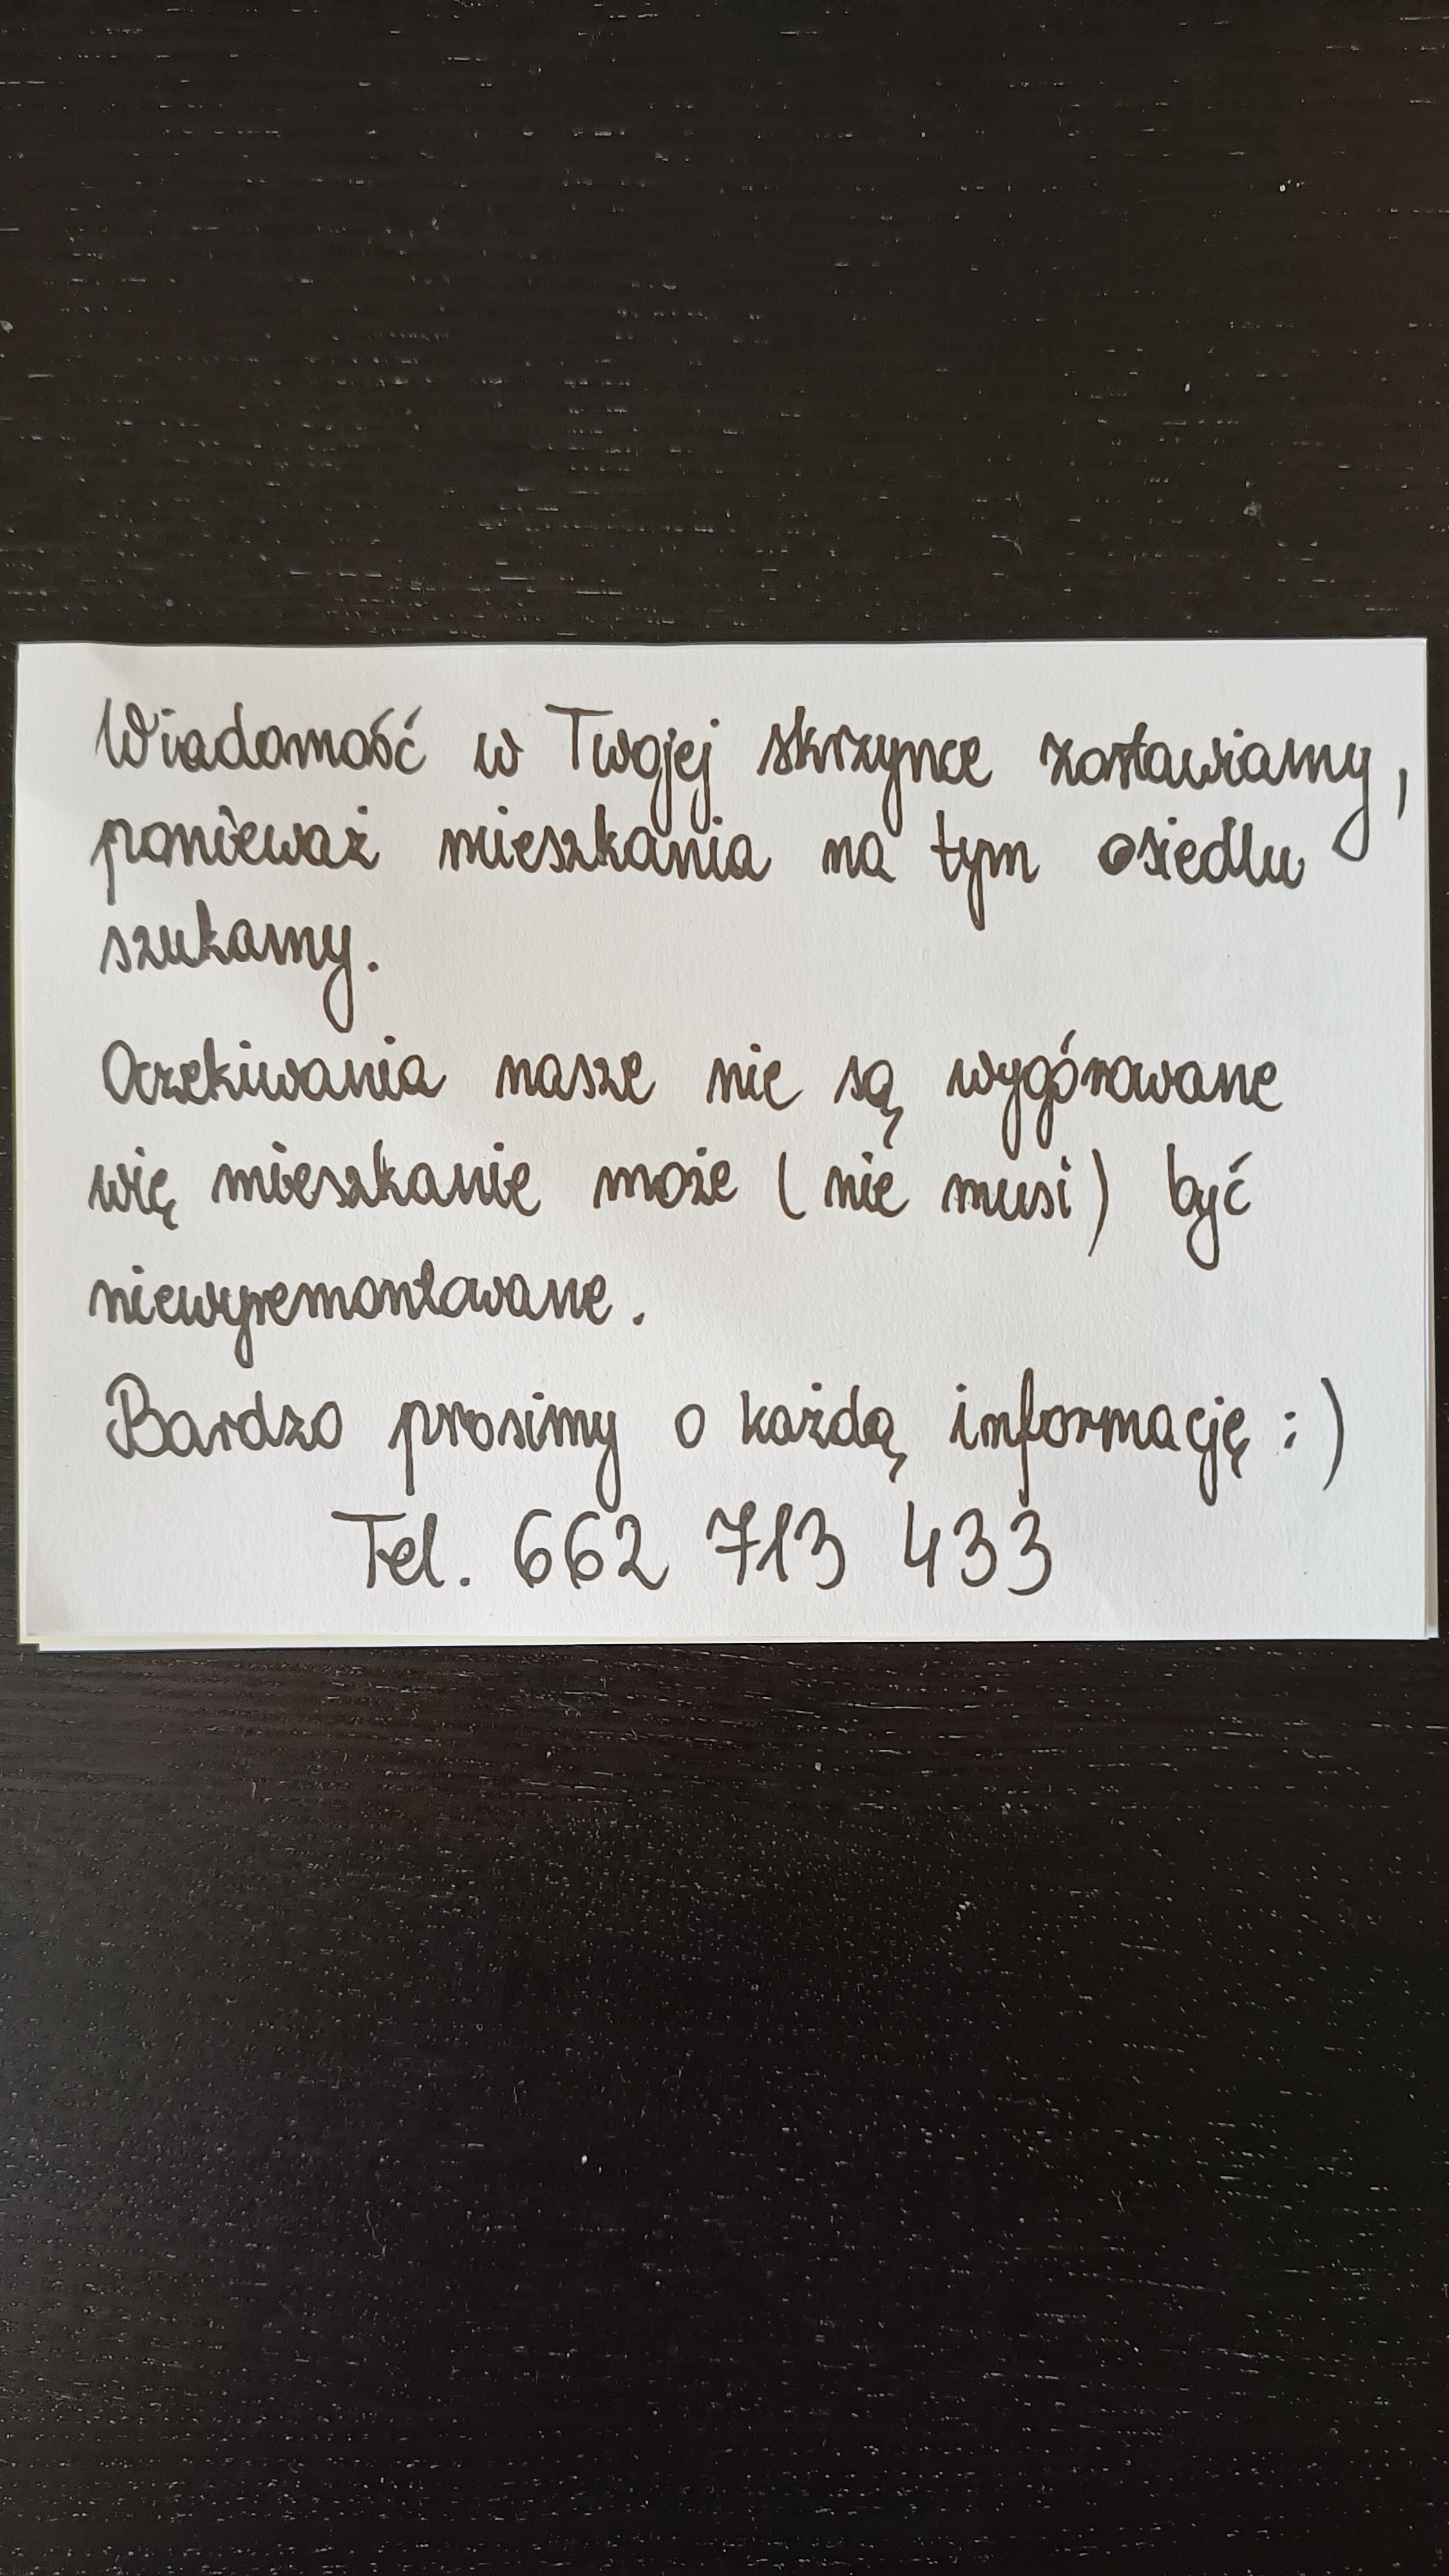 Wiadomość w Twojej skrzynce zostawiamy,
ponieważ mieszkania na tym osiedlu
szukamy.
Oczekiwania nasze nie są wygórowane
wię mieszkanie może (nie musi) być
niewyremontowane.
Bardzo prosimy o każdą informację :)
Tel. 662 713 433